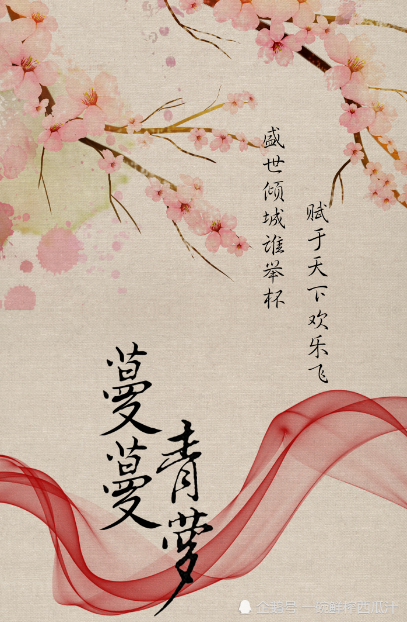 盛世倾城谁举杯
赋于天下欢乐飞
蔓蔓
青萝
企鹅号 一碗鲜榨西瓜汁